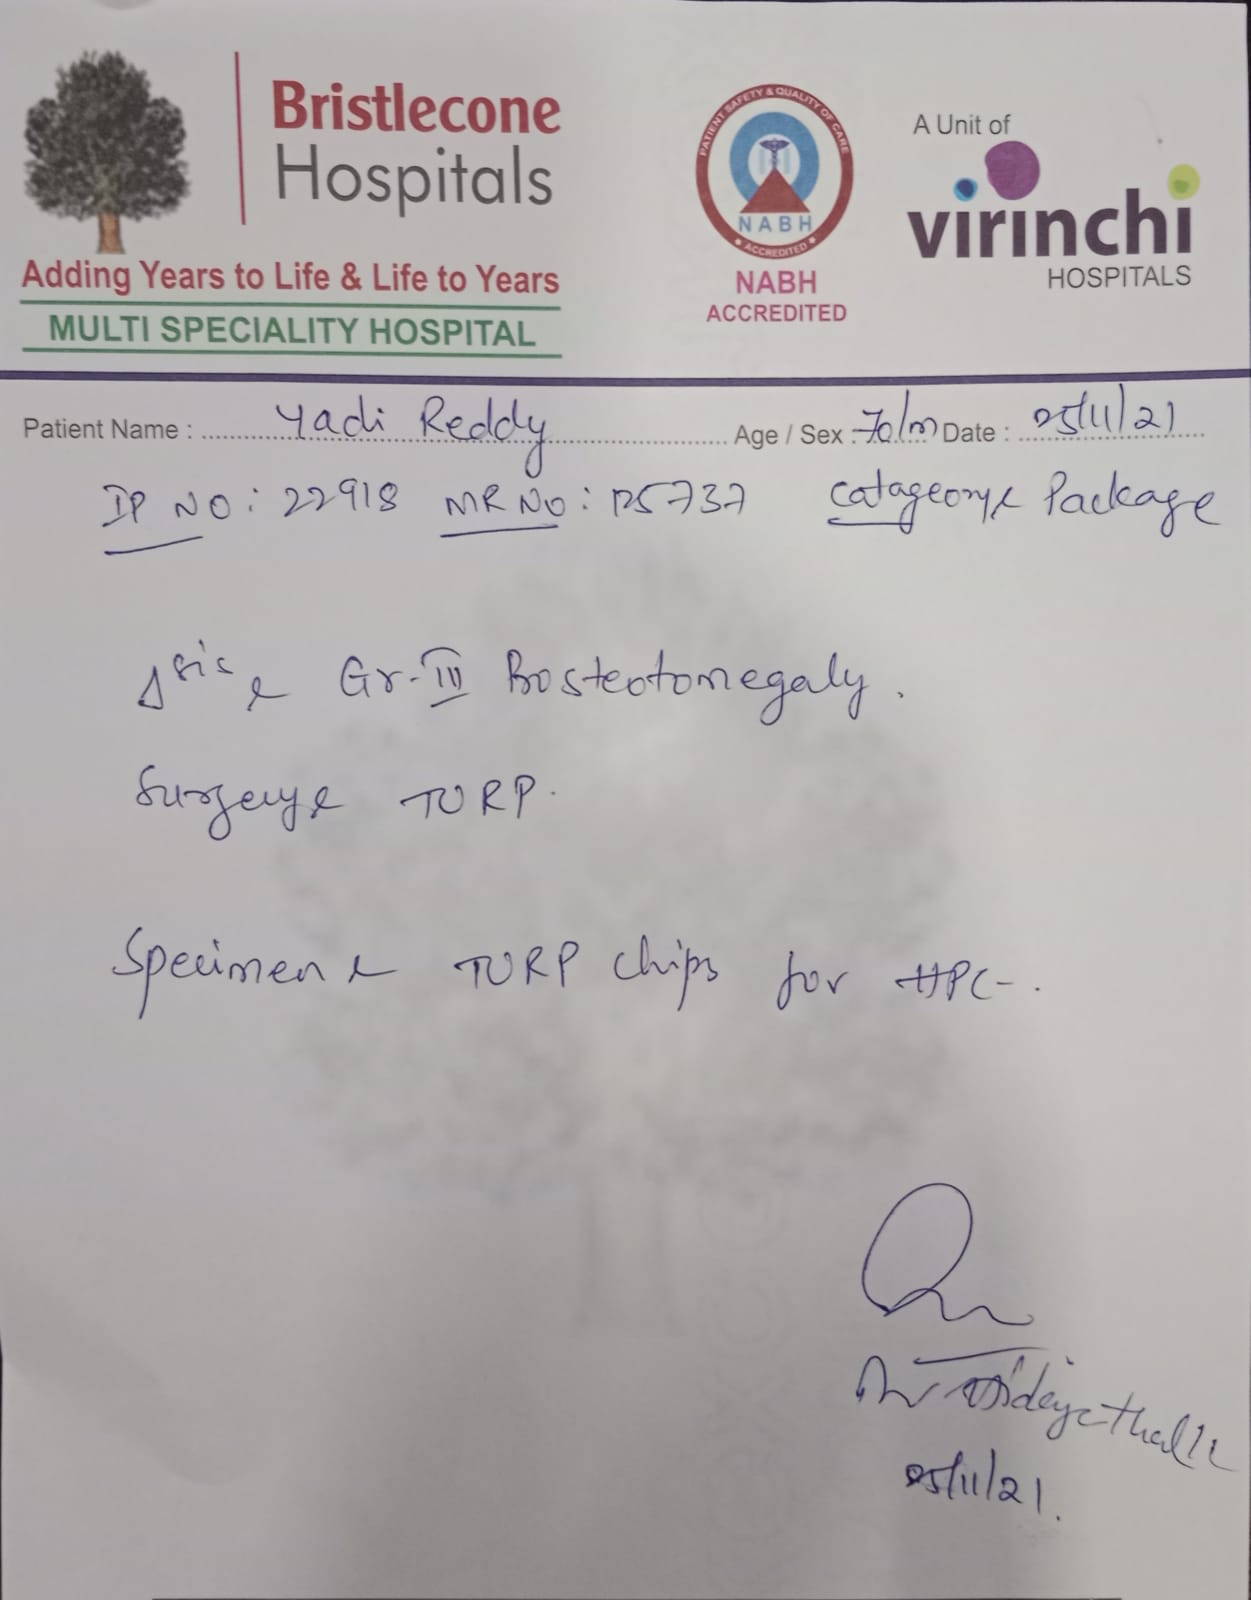 Bristlecone
Hospitals
Adding Years to Life & Life to Years
MULTI SPECIALITY HOSPITAL
PATIENT SAFETY & QUALITY OF CARE
NABH
ACCREDITED
NABH
ACCREDITED
A Unit of
virinchi
HOSPITALS
Patient Name : Yadi Reddy Age / Sex : 70/m Date : 25/11/21
IP NO : 22918 MR NO : 125737 Package
Gr-III
TURP.
Specimen TURP chips for
25/11/21.